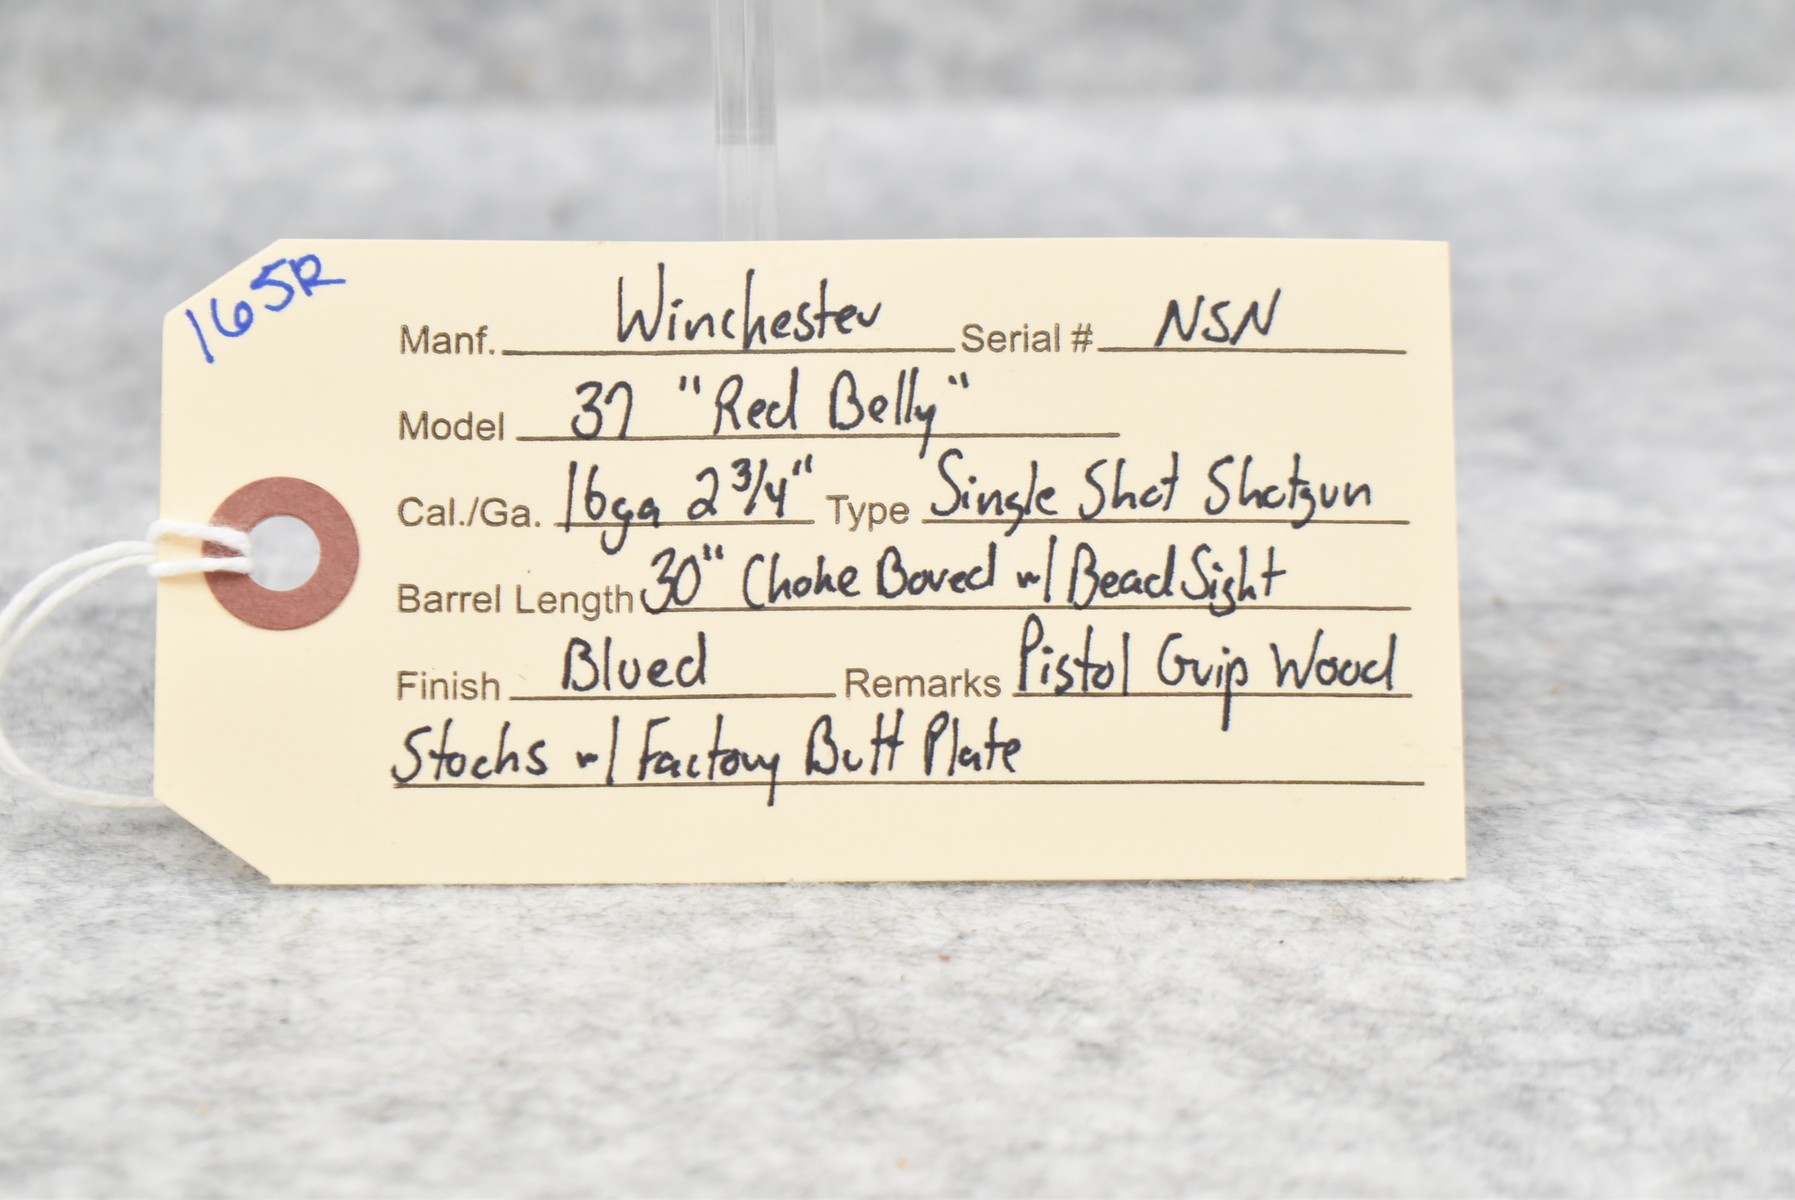 165R
Manf. Winchester Serial # NSN
Model 37 "Red Belly"
Cal./Ga. 16ga 2 3/4" Type Single Shot Shotgun
Barrel Length 30" Choke Bored w/ Bead Sight
Finish Blued Remarks Pistol Grip Wood
Stocks w/ Factory Butt Plate